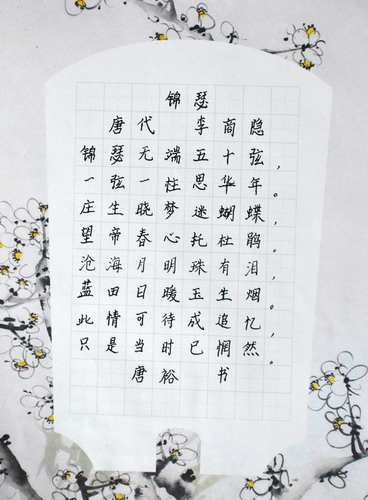 锦瑟
唐代 李商隐
锦瑟无端五十弦，
一弦一柱思华年。
庄生晓梦迷蝴蝶，
望帝春心托杜鹃。
沧海月明珠有泪，
蓝田日暖玉生烟。
此情可待成追忆，
只是当时已惘然。
唐裕 书